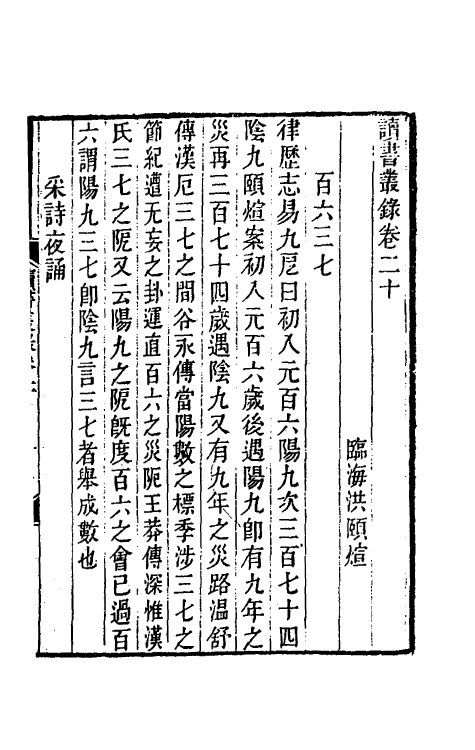 讀書叢錄卷二十
臨海洪頤煊
百六三七
律歷志易九戹曰初入元百六陽九次三百七十四
陰九頤煊案初入元百六歲後遇陽九卽有九年之
災再三百七十四歲遇陰九又有九年之災路溫舒
傳漢厄三七之間谷永傳當陽數之標季涉三七之
節紀遭无妄之卦運直百六之災阨王莽傳深惟漢
氏三七之阸又云陽九之阸旣度百六之會已過百
六謂陽九三七卽陰九言三七者舉成數也
采詩夜誦